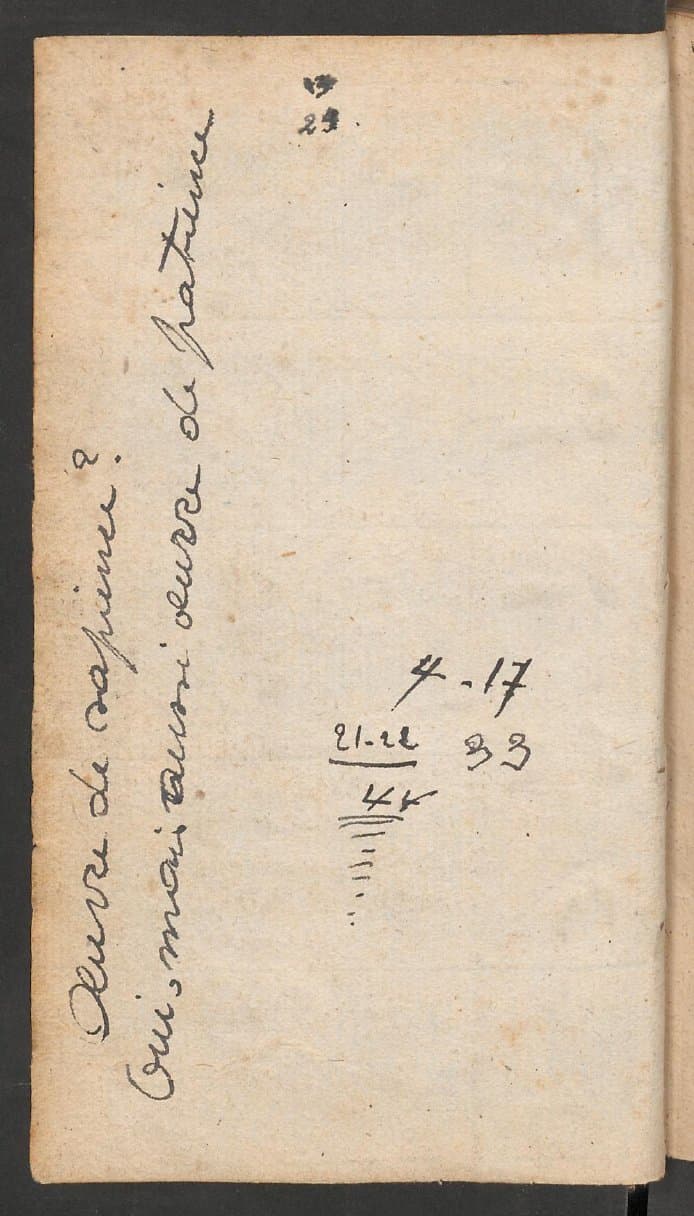 Oeuvre de sapience?
Oui, mais aussi oeuvre de patience
29
4-17
21-22 33
44